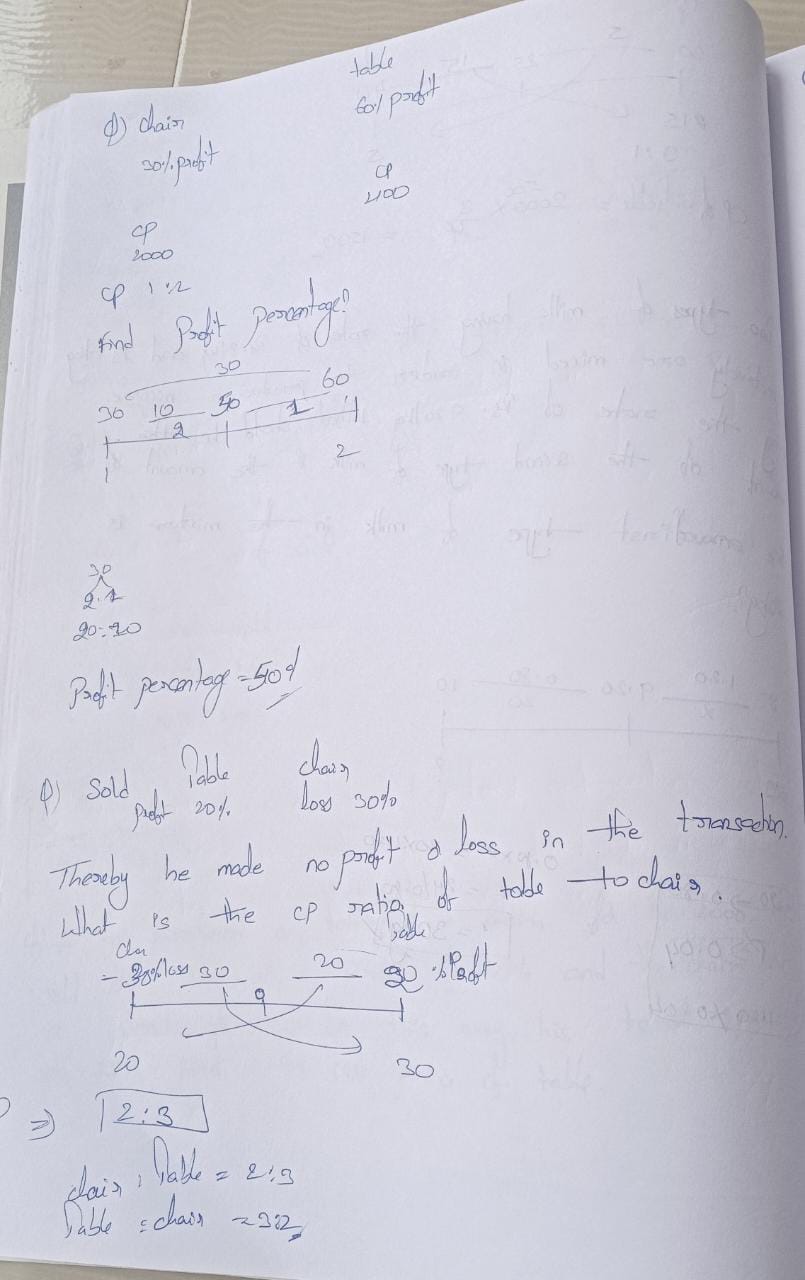 table
Q) chair 60% profit
30% profit
CP
400
CP
2000
CP 1:2
Find Profit percentage?
30
60
30 10 50 1
2
2
30
2:1
20:10
Profit percentage = 50%
Q) Sold Table chair
profit 20% loss 30%
Thereby he made no profit & loss in the transaction.
What is the CP ratio of table to chair.
table
- 30% loss 30 20 20 % Profit
0
20 30
⇒ 2:3
chair : Table = 2:3
Table : chair = 3:2